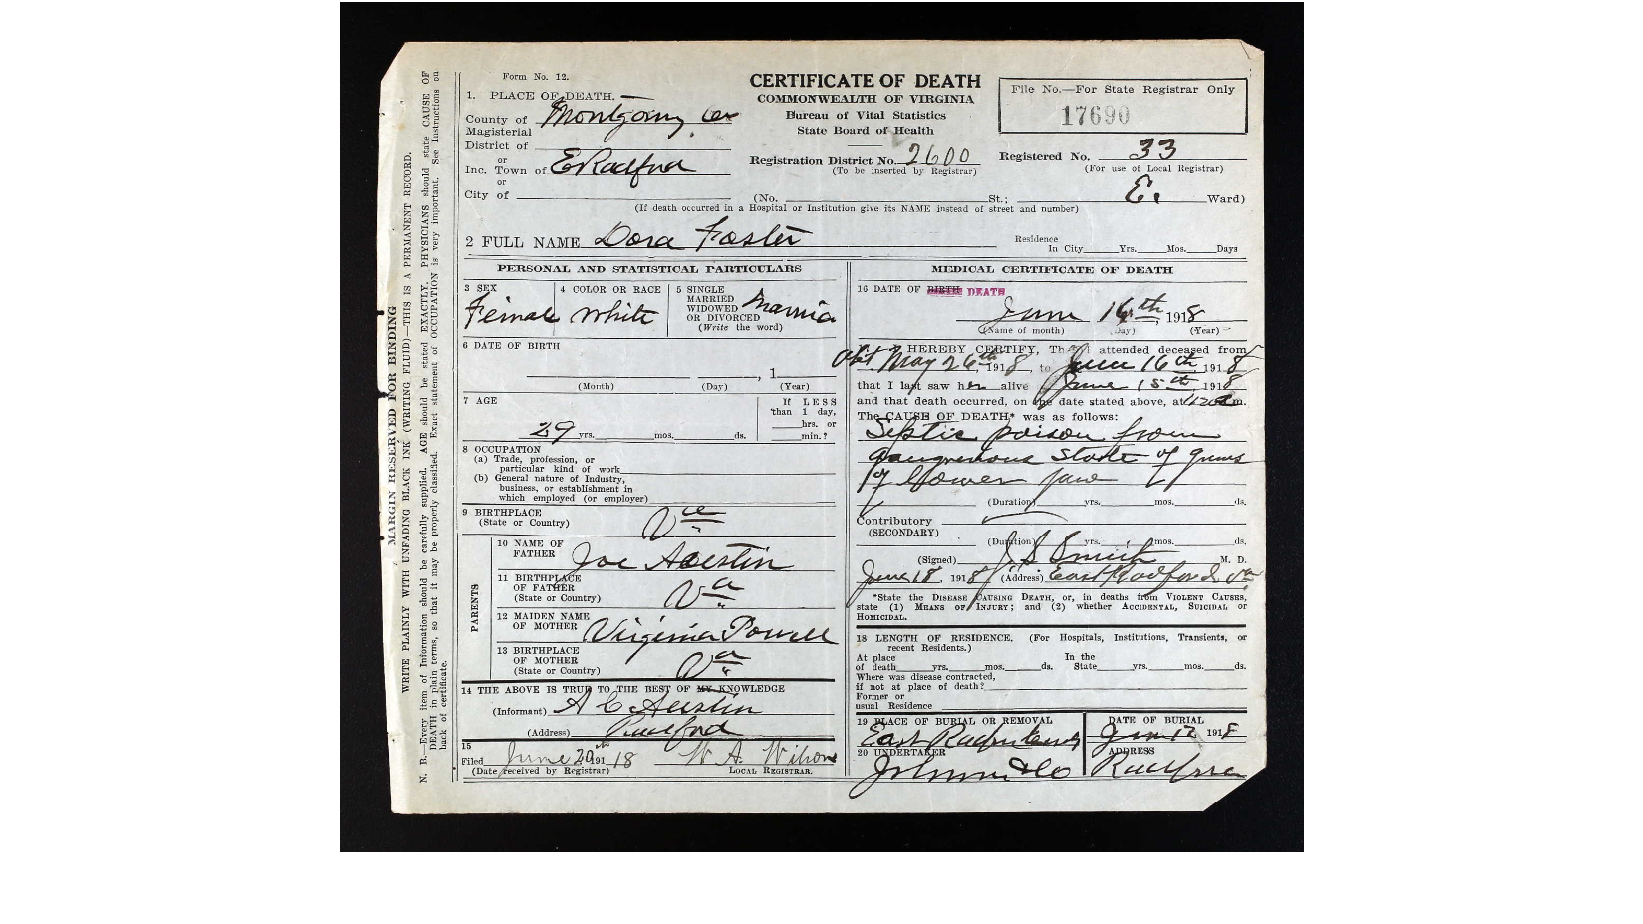 Form No. 12.
CERTIFICATE OF DEATH
COMMONWEALTH OF VIRGINIA
Bureau of Vital Statistics
State Board of Health
File No.—For State Registrar Only
17690
1. PLACE OF DEATH.
County of Montgomy Co
Magisterial
District of
or
Inc. Town of E Radford
or
City of
Registration District No. 2600
(To be inserted by Registrar)
Registered No. 33
(For use of Local Registrar)
(No. St.; E. Ward)
(If death occurred in a Hospital or Institution give its NAME instead of street and number)
2 FULL NAME Dora Foster
Residence
In City Yrs. Mos. Days
PERSONAL AND STATISTICAL PARTICULARS
3 SEX
Female
4 COLOR OR RACE
White
5 SINGLE
MARRIED
WIDOWED
OR DIVORCED
(Write the word)
6 DATE OF BIRTH
, 1
(Month) (Day) (Year)
7 AGE
29 yrs. mos. ds.
If LESS
than 1 day,
hrs. or
min.?
8 OCCUPATION
(a) Trade, profession, or
particular kind of work
(b) General nature of Industry,
business, or establishment in
which employed (or employer)
9 BIRTHPLACE
(State or Country) Va
PARENTS
10 NAME OF
FATHER Joe Austin
11 BIRTHPLACE
OF FATHER
(State or Country) Va
12 MAIDEN NAME
OF MOTHER Virginia Powell
13 BIRTHPLACE
OF MOTHER
(State or Country) Va
14 THE ABOVE IS TRUE TO THE BEST OF MY KNOWLEDGE
(Informant) A C Austin
(Address) Radford
15
Filed June 20th 191 18 W. A. Wilson
(Date received by Registrar) LOCAL REGISTRAR.
MEDICAL CERTIFICATE OF DEATH
16 DATE OF BIRTH DEATH
June 16th, 1918
(Name of month) (Day) (Year)
HEREBY CERTIFY, That I attended deceased from
May 26th, 1918, to June 16th, 1918
that I last saw her alive June 15th, 1918
and that death occurred, on the date stated above, at m.
The CAUSE OF DEATH* was as follows:
Septic poison from
gangrenous State of gums
of Lower jaw
(Duration) yrs. mos. ds.
Contributory
(SECONDARY)
(Duration) yrs. mos. ds.
(Signed) J S Smith M. D.
June 18, 1918 (Address) East Radford Va
*State the DISEASE CAUSING DEATH, or, in deaths from VIOLENT CAUSES,
state (1) MEANS OF INJURY; and (2) whether ACCIDENTAL, SUICIDAL or
HOMICIDAL.
18 LENGTH OF RESIDENCE. (For Hospitals, Institutions, Transients, or
recent Residents.)
At place In the
of death yrs. mos. ds. State yrs. mos. ds.
Where was disease contracted,
if not at place of death?
Former or
usual Residence
19 PLACE OF BURIAL OR REMOVAL
East Radford
DATE OF BURIAL
Jun 17 1918
20 UNDERTAKER
ADDRESS
Radford
MARGIN RESERVED FOR BINDING
WRITE PLAINLY WITH UNFADING BLACK INK (WRITING FLUID)—THIS IS A PERMANENT RECORD.
N. B.—Every item of Information should be carefully supplied. AGE should be stated EXACTLY. PHYSICIANS should state CAUSE OF
DEATH in plain terms, so that it may be properly classified. Exact statement of OCCUPATION is very important. See Instructions on
back of certificate.